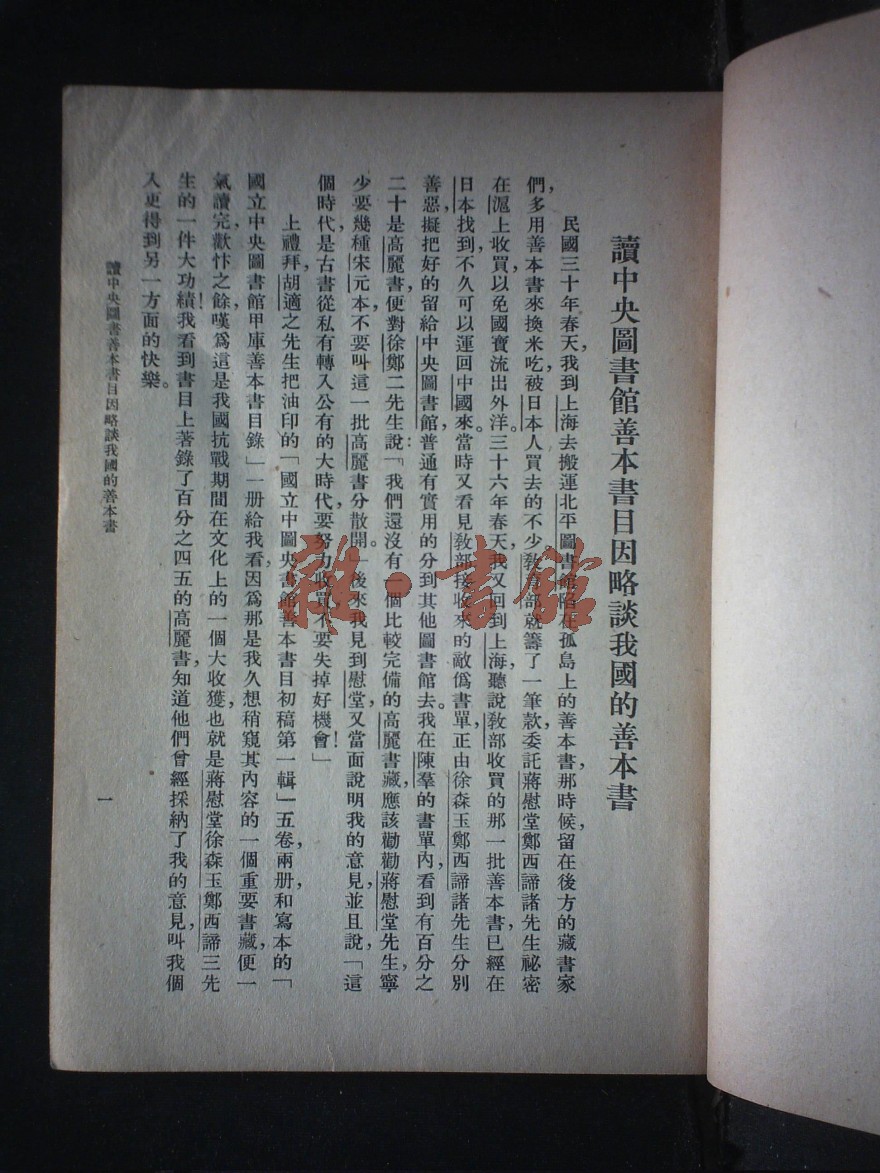 讀中央圖書館善本書目因略談我國的善本書
民國三十年春天，我到上海去搬運北平圖書館陷在孤島上的善本書，那時候，留在後方的藏書家
們，多用善本書來換米吃，被日本人買去的不少，教育部就籌了一筆款，委託蔣慰堂鄭西諦諸先生祕密
在滬上收買，以免國寶流出外洋。三十六年春天，我又回到上海，聽說教部收買的那一批善本書，已經在
日本找到，不久可以運回中國來。當時又看見教部接收來的敵僞書單，正由徐森玉鄭西諦諸先生分別
善惡，擬把好的留給中央圖書館，普通有實用的分到其他圖書館去。我在陳羣的書單內，看到有百分之
二十是高麗書，便對徐鄭二先生說：「我們還沒有一個比較完備的高麗書藏，應該勸勸蔣慰堂先生，寧
少要幾種宋元本，不要叫這一批高麗書分散開。」後來我見到慰堂，又當面說明我的意見，並且說，「這
個時代，是古書從私有轉入公有的大時代，要努力收買，不要失掉好機會！」
上禮拜，胡適之先生把油印的「國立中圖央書館善本書目初稿第一輯」五卷，兩册，和寫本的「
國立中央圖書館甲庫善本書目錄」一册給我看，因爲那是我久想稍窺其內容的一個重要書藏，便一
氣讀完，歡忭之餘，嘆爲這是我國抗戰期間在文化上的一個大收獲，也就是蔣慰堂徐森玉鄭西諦三先
生的一件大功績！我看到書目上著錄了百分之四五的高麗書，知道他們曾經採納了我的意見，叫我個
人更得到另一方面的快樂。
讀中央圖書善本書目因略談我國的善本書
一
雜·書館